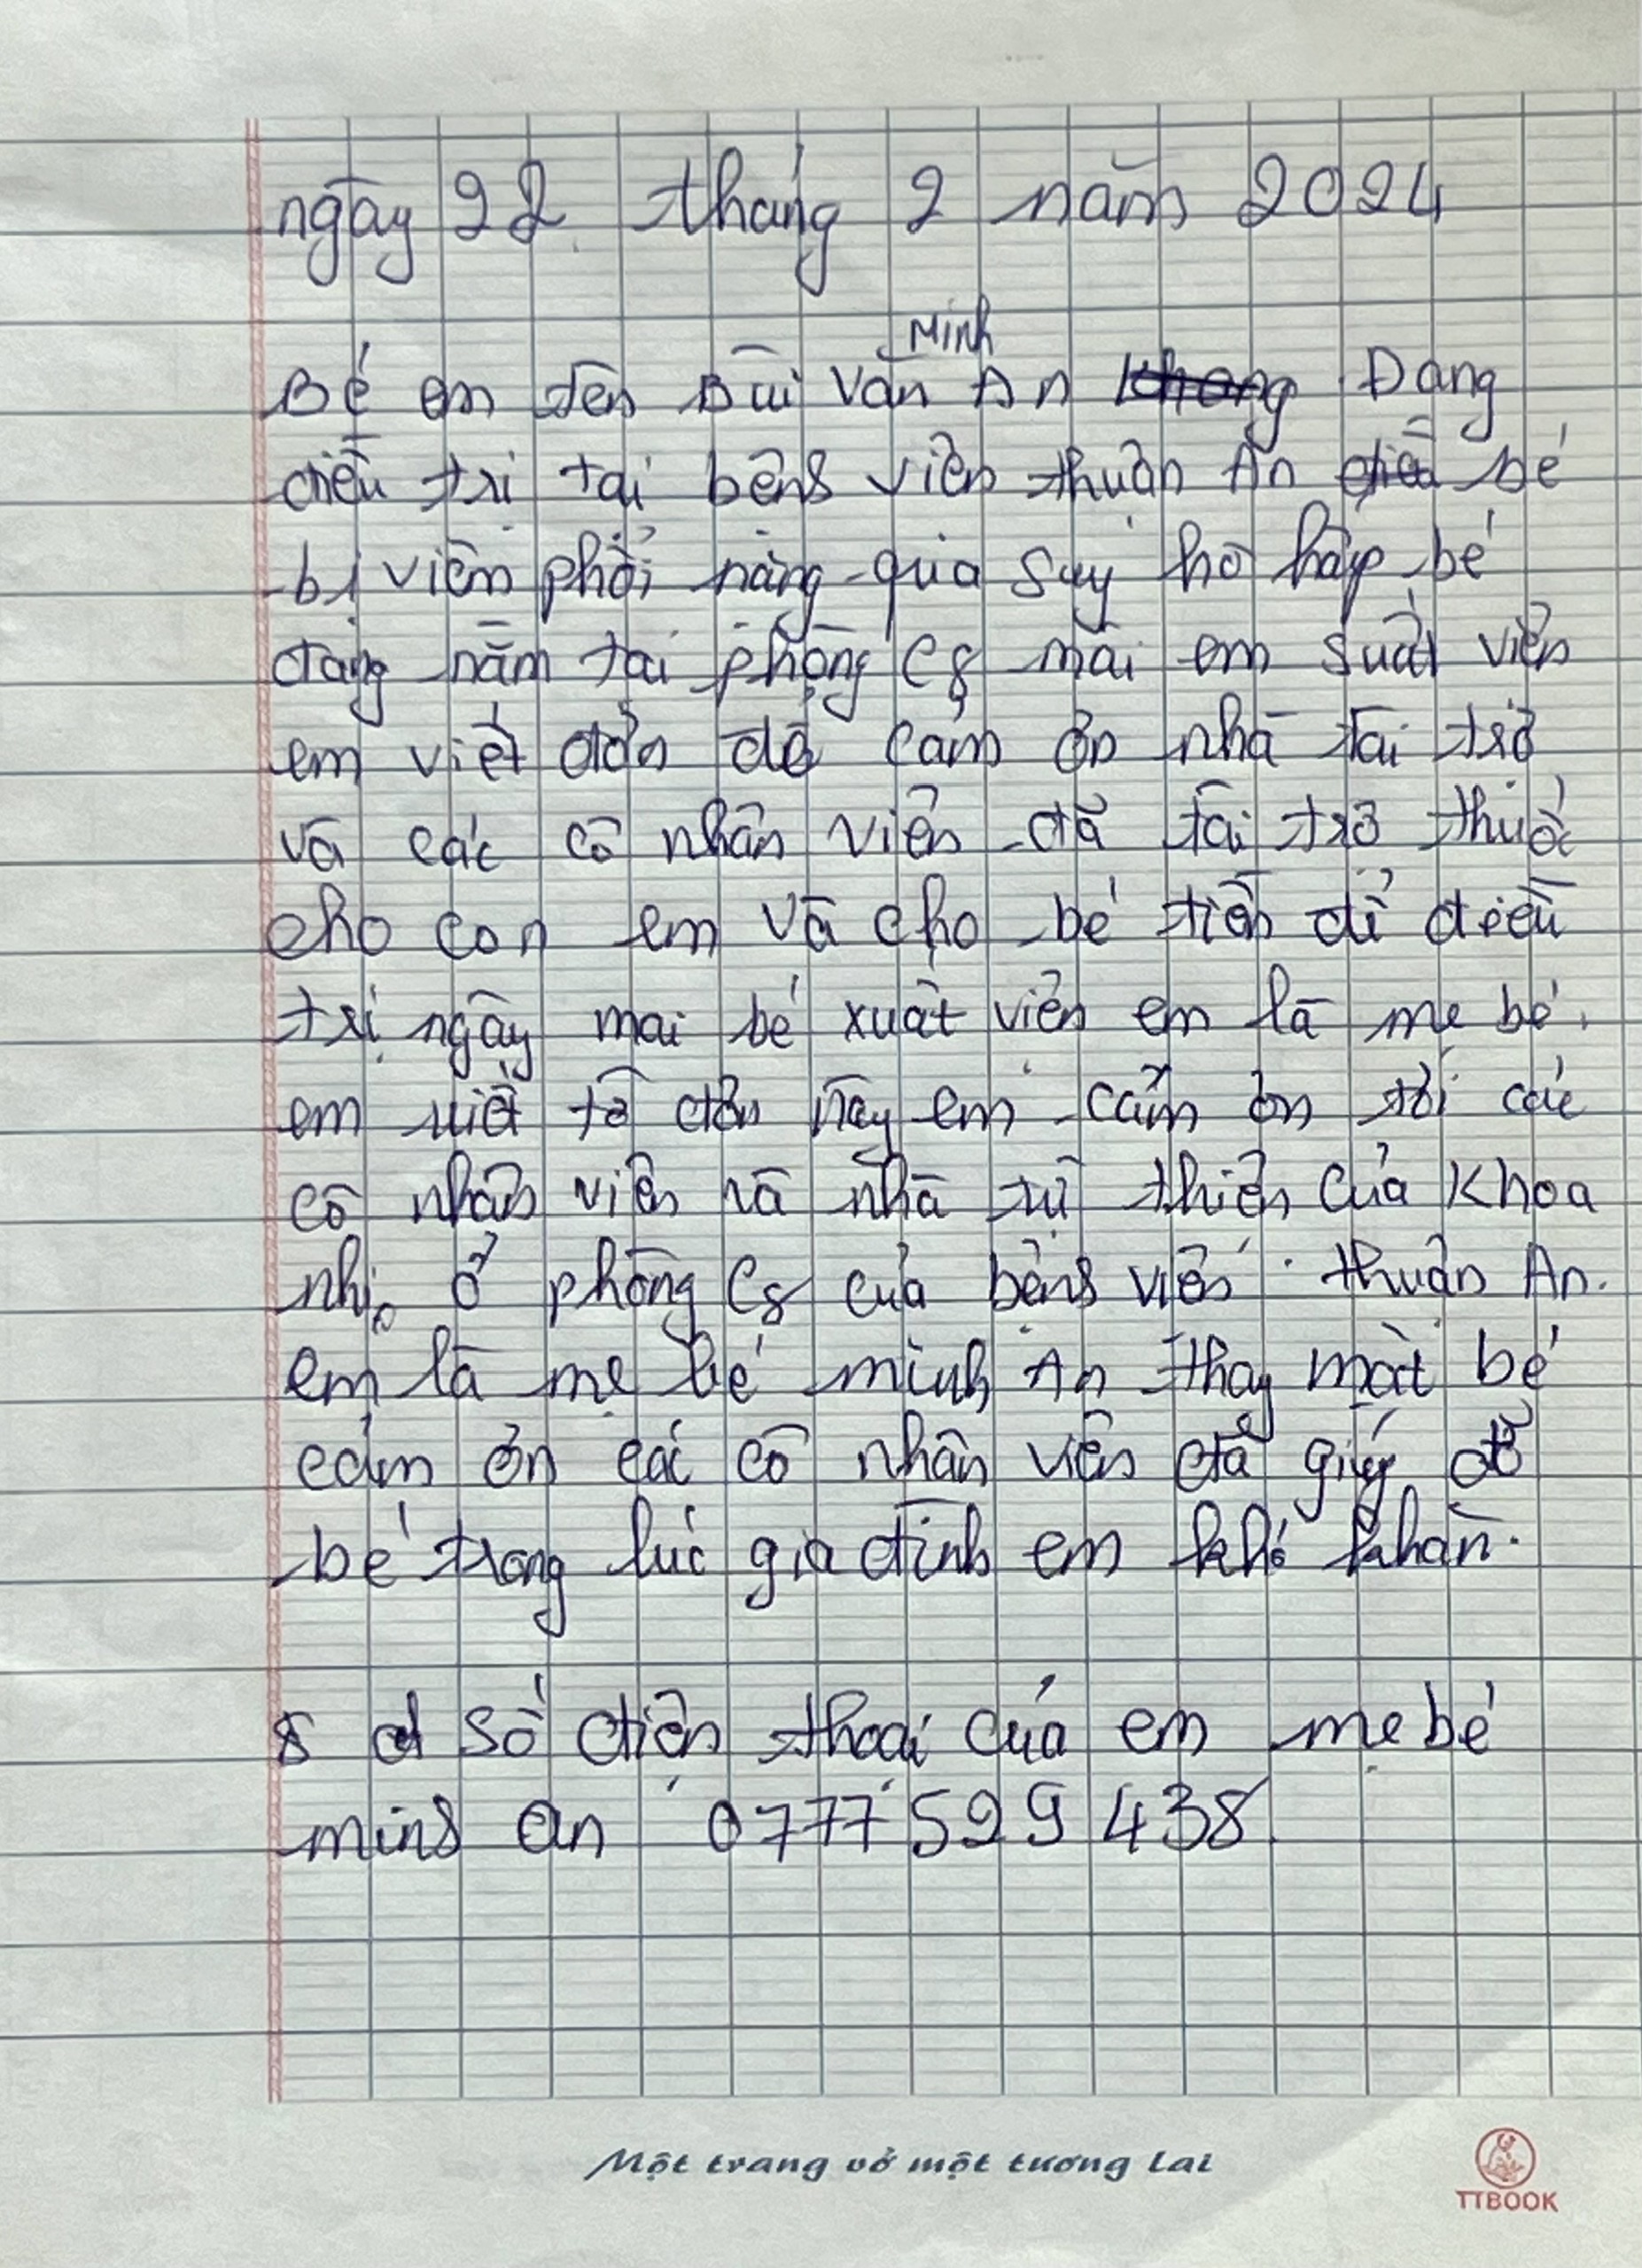 ngày 22 tháng 2 năm 2024
Minh
Bé em tên Bùi Văn An Đang
điều trị tại bệnh viện thuận An bé
bị viêm phổi nặng qúa suy hô hấp bé
đang nằm tại phòng C8 mai em suất viện
em viết đơn để cảm ơn nhà tài trợ
và các cô nhân viên đã tài trợ thuốc
cho con em và cho bé tiền để điều
trị ngày mai bé xuất viện em là mẹ bé.
em viết tờ đơn này em cảm ơn tới các
cô nhân viên và nhà từ thiện của Khoa
nhi, ở phòng C8 của bệnh viện thuận An.
em là mẹ bé minh An thay mặt bé
cảm ơn các cô nhân viên đã giúp đỡ
bé trong lúc gia đình em khó khăn.
số điện thoại của em mẹ bé
minh an 0777 529 438.
Một trang vở một tương lai
TTBOOK